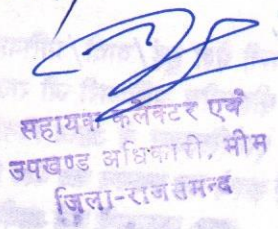 सहायक कलेक्टर एवं
उपखण्ड अधिकारी, भीम
जिला-राजसमन्द